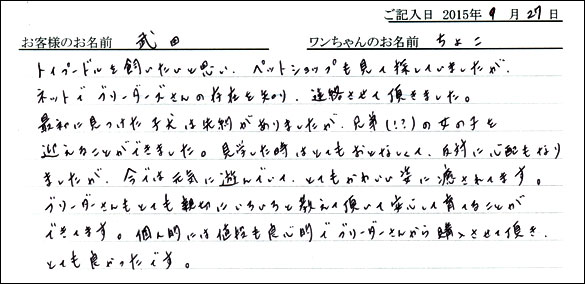 ご記入日 2015年 9 月 27 日
お客様のお名前 武田 ワンちゃんのお名前 ちょこ
トイプードルを飼いたいと思い、ペットショップも見て探していましたが、
ネットでブリーダーズさんの存在を知り、連絡させて頂きました。
最初に見つけた子犬は先約がありましたが、兄弟(!?)の女の子を
迎えることができました。見学した時はとてもおとなしくて、反対に心配もなり
ましたが、今では元気に遊んでいて、とてもかわいい姿に癒されてます。
ブリーダーさんもとても親切にいろいろと教えて頂いて安心して育てることが
できてます。個人的には値段も良心的でブリーダーさんから購入させて頂き、
とても良かったです。